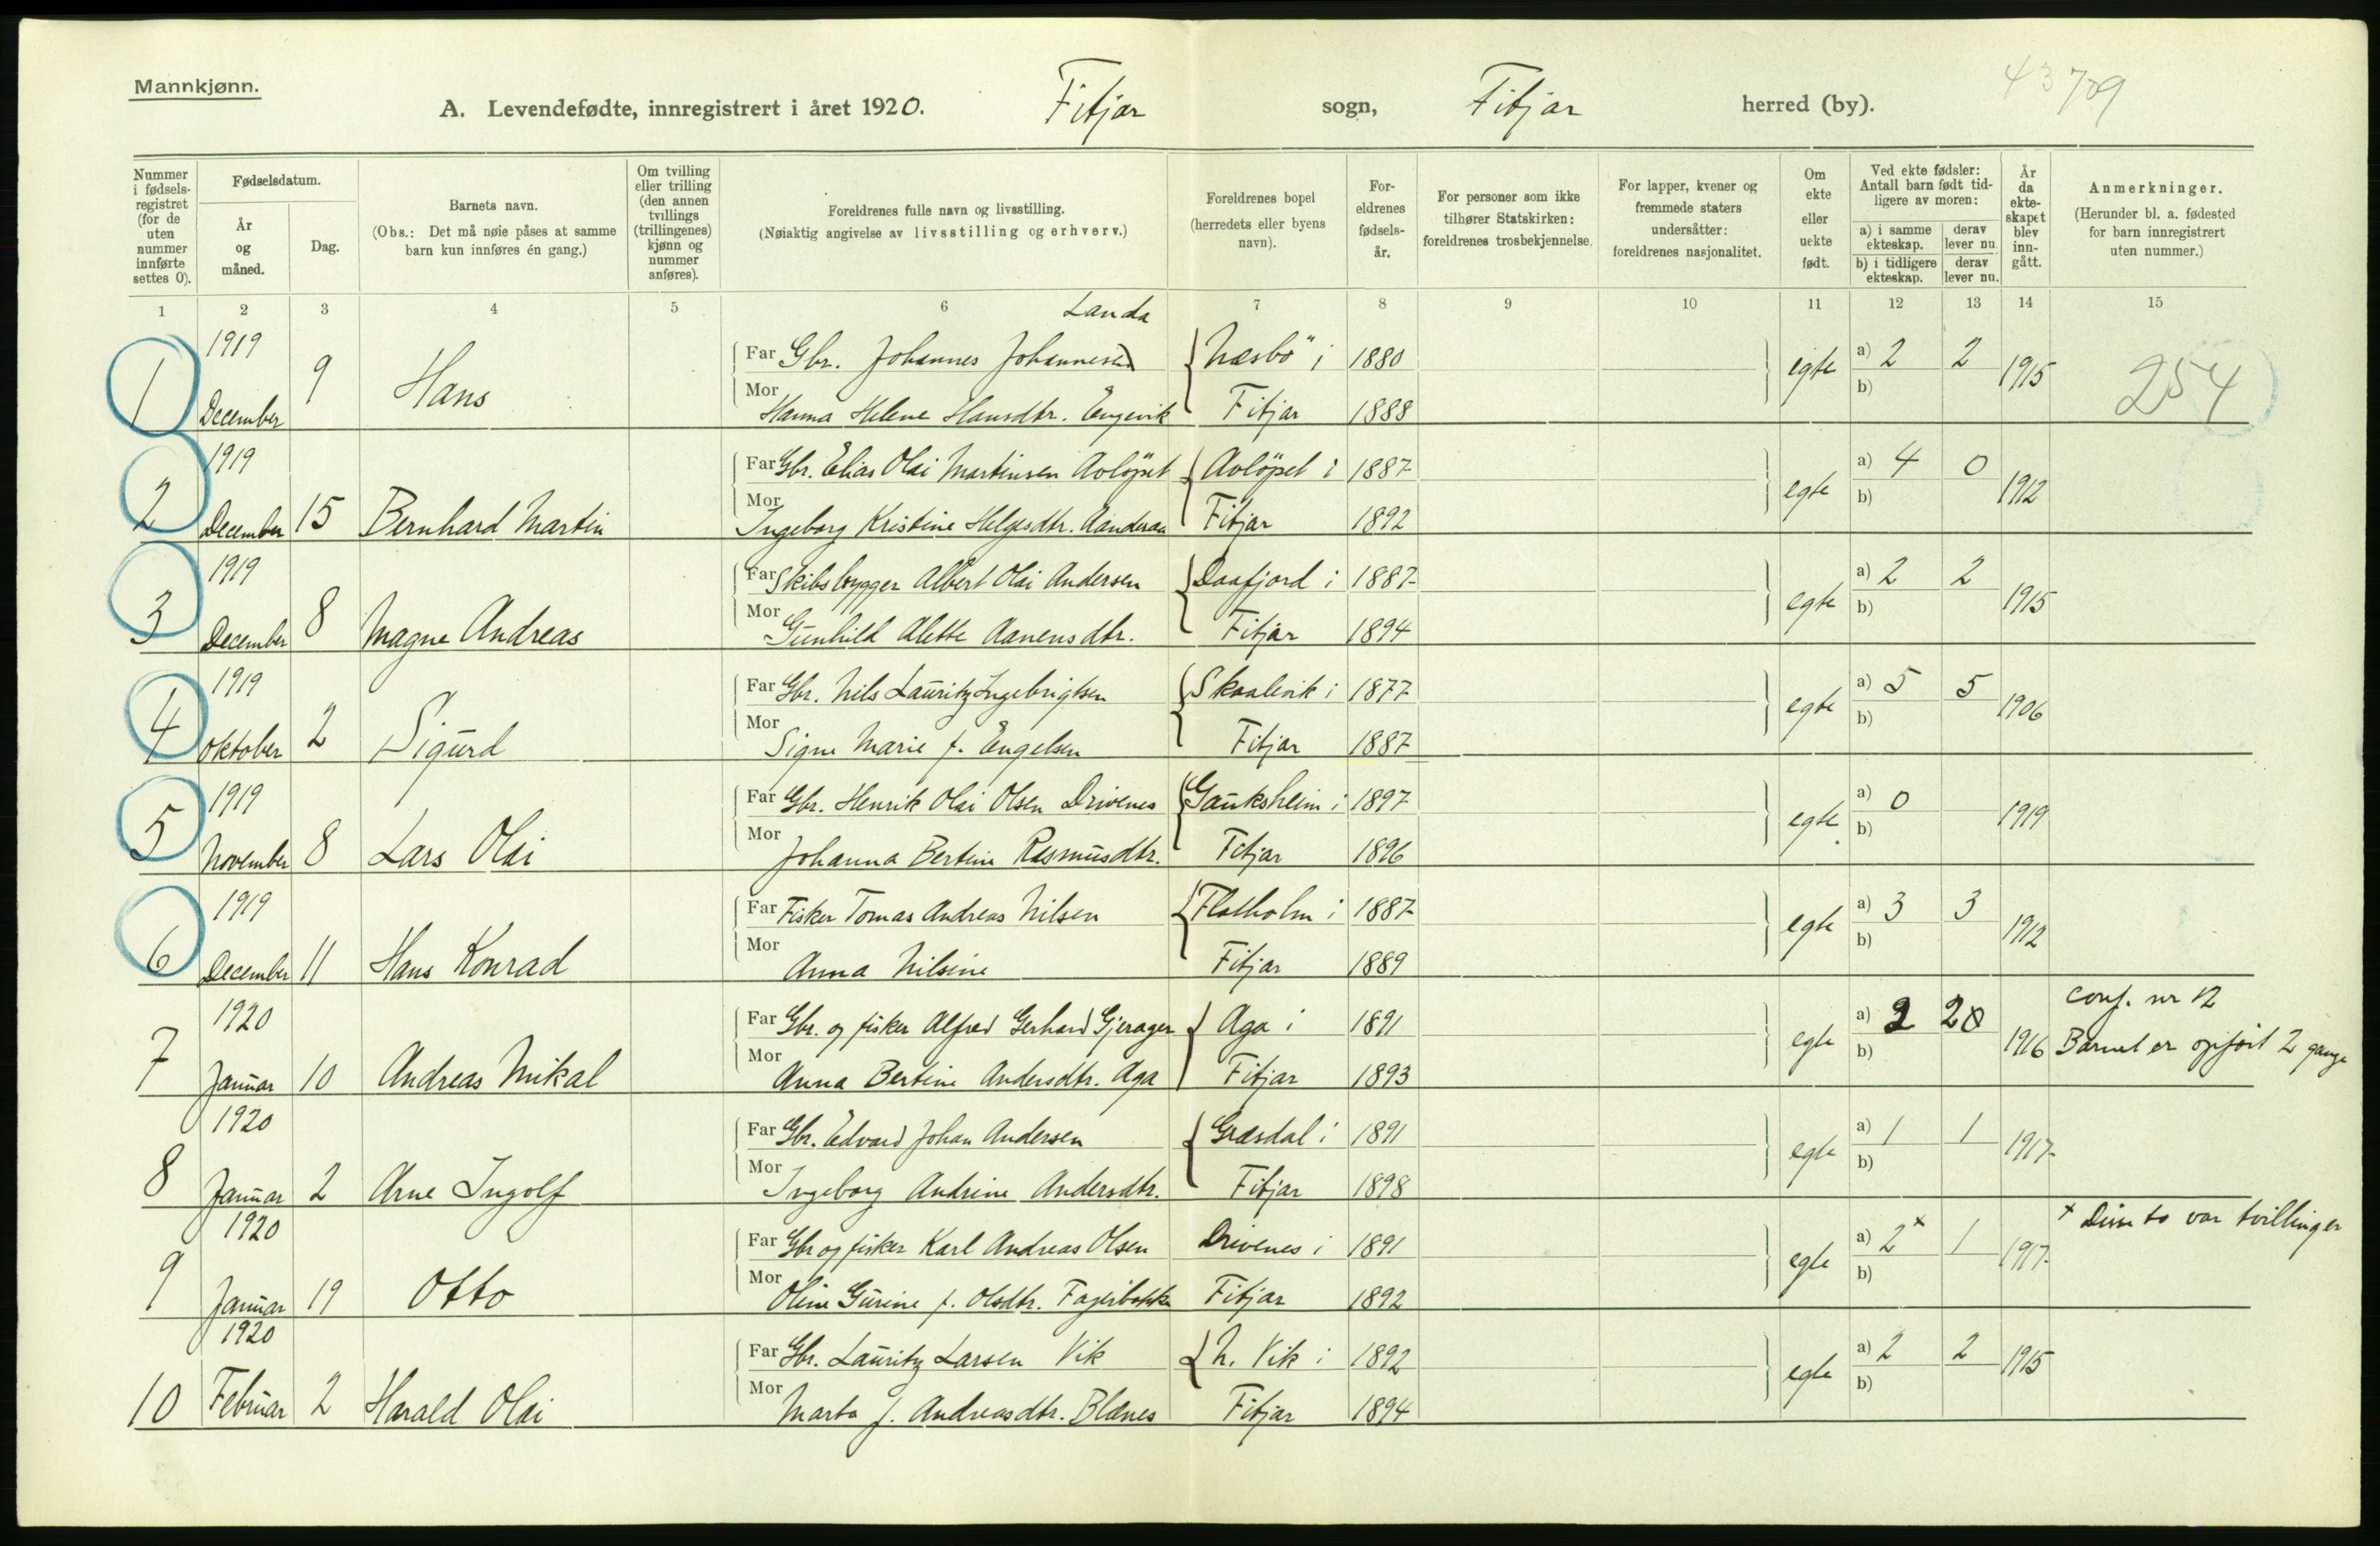 Mannkjønn.
43 709
A. Levendefødte, innregistrert i året 1920. Fitjar sogn, Fitjar herred (by).
Nummer i fødsels-registret (for de uten nummer innførte settes 0).
Fødselsdatum.
År og måned.
Dag.
Barnets navn.
(Obs.: Det må nøie påses at samme barn kun innføres én gang.)
Om tvilling eller trilling (den annen tvillings (trillingenes) kjønn og nummer anføres).
Foreldrenes fulle navn og livsstilling.
(Nøiaktig angivelse av livsstilling og erhverv.)
Foreldrenes bopel (herredets eller byens navn).
For-eldrenes fødsels-år.
For personer som ikke tilhører Statskirken: foreldrenes trosbekjennelse.
For lapper, kvener og fremmede staters undersåtter: foreldrenes nasjonalitet.
Om ekte eller uekte født.
Ved ekte fødsler: Antall barn født tid-ligere av moren:
a) i samme ekteskap. derav lever nu.
b) i tidligere ekteskap. derav lever nu.
År da ekte-skapet blev inn-gått.
Anmerkninger.
(Herunder bl. a. fødested for barn innregistrert uten nummer.)
1 2 3 4 5 6 7 8 9 10 11 12 13 14 15
Landa
1 1919 December 9 Hans
Far Gbr. Johannes Johannesen Næsbö i 1880 egte a) 2 2 1915 254
Mor Hanna Helene Hansdtr. Engevik Fitjar 1888 b)
2 1919 December 15 Bernhard Martin
Far Gbr. Elias Olai Martinsen Avlöpet Avlöpet i 1887 egte a) 4 0 1912
Mor Ingeborg Kristine Helgesdtr. Aanderaa Fitjar 1892 b)
3 1919 December 8 Magne Andreas
Far Skibsbygger Albert Olai Andersen Daafjord i 1887 egte a) 2 2 1915
Mor Gunhild Alette Aanensdtr. Fitjar 1894 b)
4 1919 Oktober 2 Sigurd
Far Gbr. Nils Lauritz Ingebrigtsen Skaalevik i 1877 egte a) 5 5 1906
Mor Signe Marie f. Engelsen Fitjar 1887 b)
5 1919 November 8 Lars Olai
Far Gbr. Henrik Olai Olsen Drivenes Gauksheim i 1897 egte a) 0 1919
Mor Johanna Bertine Rasmusdtr. Fitjar 1896 b)
6 1919 December 11 Hans Konrad
Far Fisker Tomas Andreas Nilsen Flatholm i 1887 egte a) 3 3 1912
Mor Anna Nilsine Fitjar 1889 b)
7 1920 Januar 10 Andreas Mikal
Far Gbr. og fisker Alfred Gerhard Gjerager Aga i 1891 egte a) 2 2 1916 conf. nr 12
Mor Anna Bertine Andersdtr. Aga Fitjar 1893 b) Barnet er opfört 2 gange
8 1920 Januar 2 Arne Ingolf
Far Gbr. Edvard Johan Andersen Græsdal i 1891 egte a) 1 1 1917
Mor Ingeborg Andrine Andersdtr. Fitjar 1898 b)
9 1920 Januar 19 Otto
Far Gbr og fisker Karl Andreas Olsen Drivenes i 1891 egte a) 2x 1 1917 x Disse to var tvillinger
Mor Oline Gurine f. Olsdtr. Fitjar 1892 b)
10 1920 Februar 2 Harald Olai
Far Gbr. Lauritz Larsen Vik N. Vik i 1892 egte a) 2 2 1915
Mor Marta f. Andreasdtr. Blænes Fitjar 1894 b)